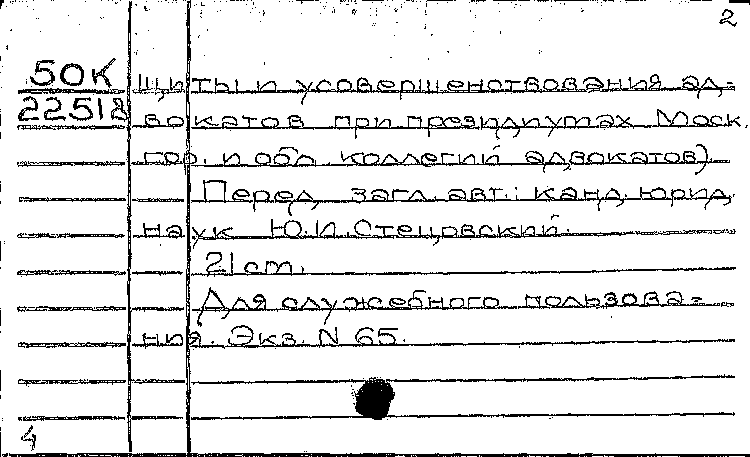 2
50К щиты и усовершенствования ад=
22518 вокатов при президиумах Моск.
гор. и обл. коллегий адвокатов).
Перед загл. авт.: канд. юрид.
наук Ю.И.Стецовский.
21 cm.
Для служебного пользова=
ния. Экз. N 65.
4